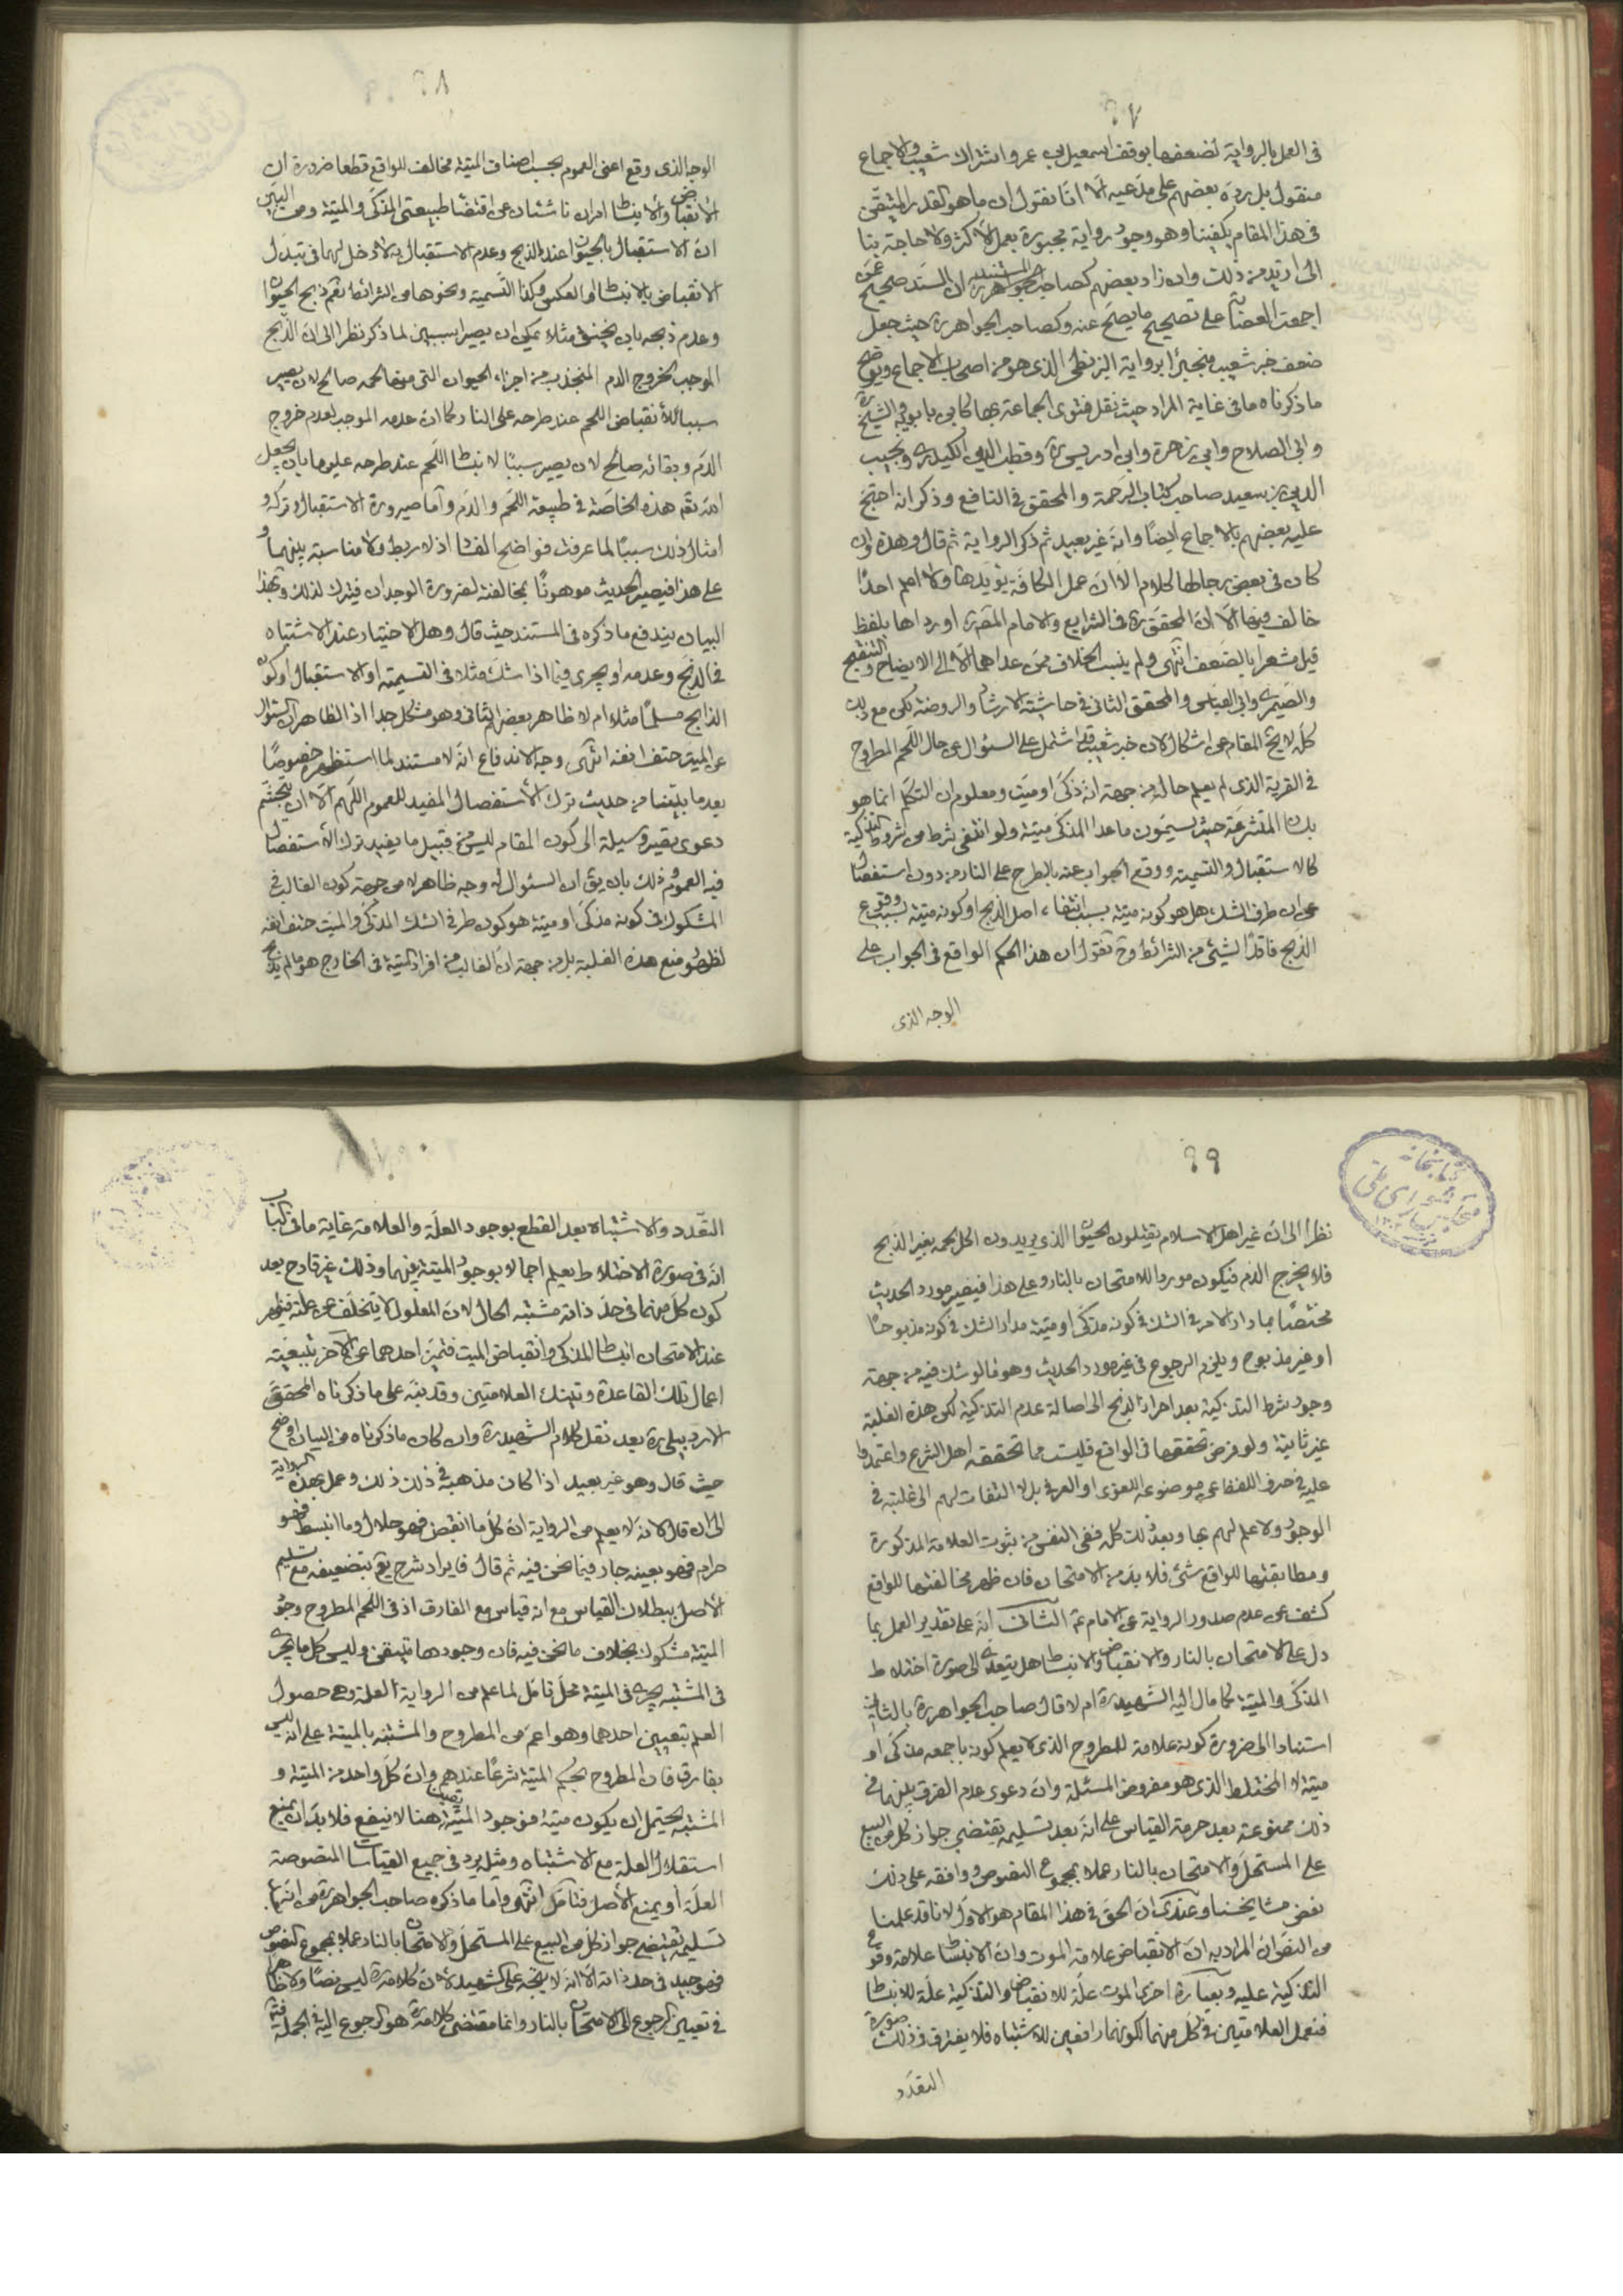 ٩٧
فى العمل بالرواية لضعفها بوقف اسمعيل بن عمر واشتراك شعيب والاجماع
منقول بل رده بعضهم على مدعيه الا انا نقول ان ما هو القدر المتيقن
فى هذا المقام يكفينا وهو وجود رواية مجبورة بعمل الاكثر ولا حاجة بنا
الى ازيد من ذلك وان زاد بعضهم كصاحب المستند ان السند صحيح عمن
اجمعت العصابة على تصحيح ما يصح عنه وكصاحب الجواهر ره حيث جعل
ضعف خبر شعيب منجبرا برواية البزنطى الذى هو من اصحاب الاجماع ويوضح
ما ذكرناه ما فى غاية المراد حيث نقل فتوى الجماعة بها كابن بابويه والشيخ
وابى الصلاح وابن زهرة وابن ادريس ره وقطب الدين الكيدرى ونجيب
الدين بن سعيد صاحب كتاب الرحمة والمحقق فى النافع وذكر انه احتج
عليه بعضهم بالاجماع ايضا وانه غير بعيد ثم ذكر الرواية ثم قال وهذه وان
كان فى بعض رجالها كلام الا ان عمل الكافة يؤيدها ولا اعلم احدا
خالف فيها الا ان المحقق ره فى الشرايع والامام المقر اورداها بلفظ
قيل مشعرا بالضعف انتهى ولم ينسب الخلاف ممن عداهما الا الى الايضاح والتنقيح
والصيمرى وابى العباس والمحقق الثانى فى حاشية الارشاد والروضة لكن مع ذلك
كله لا يخ المقام عن اشكال لان خبر شعيب قد اشتمل على السئوال عن حال اللحم المطروح
فى القرية الذى لم يعلم حاله من جهة انه ذكى او ميت ومعلوم ان التكلم انما هو
بلسان المتشرعة حيث يسمون ما عدا المذكى ميتة ولو انتفى شرط من شروط التذكية
كالاستقبال والتسمية ووقع الجواب عنه بالطرح على النار من دون استفصال
عن ان طرف الشك هل هو كونه ميتة بسبب انتفاء اصل الذبح او كونه ميتة بسبب وقوع
الذبح فاقدا لشئ من الشرائط وح نقول ان هذا الحكم الواقع فى الجواب على
الوجه الذى
٩٨
الوجه الذى وقع اعنى العموم بحسب اصناف الميتة مخالف للواقع قطعا ضرورة ان
الانقباض والانبساط امران ناشئان عن اقتضاء طبيعتى المذكى والميتة ومن البين
ان الاستقبال بالحيوان عند الذبح وعدم الاستقبال به لا دخل لهما فى تبدل
الانقباض بالانبساط او العكس وكذا التسمية ونحوها من الشرائط نعم ذبح الحيوان
وعدم ذبحه بان يخنق مثلا يمكن ان يصيرا سببين لما ذكر نظرا الى ان الذبح
الموجب لخروج الدم المنجذب من اجزاء الحيوان التى منها لحمه صالح لان يصير
سببا لانقباض اللحم عند طرحه على النار كما ان عدمه الموجب لعدم خروج
الدم وبقائه صالح لان يصير سببا لانبساط اللحم عند طرحه عليها بان يجعل
الله تعه هذه الخاصة فى طبيعة اللحم والدم واما صيرورة الاستقبال وتركه و
امثال ذلك سببا لما عرفت فواضح الفساد اذ لا ربط ولا مناسبة بينهما و
على هذا فيصير الحديث موهونا بمخالفته لضرورة الوجدان فيترك لذلك وبهذا
البيان يندفع ما ذكره فى المستند حيث قال وهل الاختبار عند الاشتباه
فى الذبح وعدمه او يجرى فيما اذا شك مثلا فى التسمية او الاستقبال او كون
الذابح مسلما مثلا ام لا ظاهر بعضهم الثانى وهو مشكل جدا اذ الظاهر ان السئوال
عن الميت حتف انفه انتهى وجه الاندفاع انه لا مستند لما استظهره خصوصا
بعد ما بيناه من حديث ترك الاستفصال المفيد للعموم اللهم الا ان يتجشم
دعوى يصير وسيلة الى كون المقام ليس من قبيل ما يفيد ترك الاستفصال
فيه العموم وذلك بان يق ان السئوال له وجه ظاهر لا من جهة كون الغالب فى
المشكوك فى كونه مذكى او ميتة هو كون طرفى الشك المذكى والميت حتف انفه
لظهور منع هذه الغلبة بل من جهة ان الغالب من افراد الميتة فى الخارج هو ما لم يذبح
٩٩
نظرا الى ان غير اهل الاسلام يقتلون الحيوان الذى يريدون اكل لحمه بغير الذبح
فلا يخرج الدم فيكون موردا للامتحان بالنار وعلى هذا فيصير مورد الحديث
مختصا بما دار الامر فى الشك فى كونه مذكى او ميتة مدار الشك فى كونه مذبوحا
او غير مذبوح ويلزم الرجوع فى غير مورد الحديث وهو ما لو شك فيه من جهة
وجود شرط التذكية بعد احراز الذبح الى اصالة عدم التذكية لكن هذه الغلبة
غير ثابتة ولو فرض تحققها فى الواقع فليست مما تحققه اهل الشرع واعتمدوا
عليه فى صرف اللفظ عن موضوعه اللغوى او العرفى بل لا التفات لهم الى غلبته فى
الوجود ولا علم لهم بها وبعد ذلك كله ففى النفس من ثبوت العلامة المذكورة
ومطابقتها للواقع شئ فلا بد من الامتحان فان ظهر مخالفتها للواقع
كشف عن عدم صدور الرواية عن الامام عم الثانى انه على تقدير العمل بما
دل على الامتحان بالنار والانقباض والانبساط هل يتعدى الى صورة اختلاط
المذكى والميتة كما مال اليه الشهيد ره ام لا قال صاحب الجواهر ره بالثانى
استنادا الى ضرورة كونه علامة للمطروح الذى لا يعلم كونه باجمعه مذكى او
ميتة لا المختلط الذى هو مفروض المسئلة وان دعوى عدم الفرق بينهما فى
ذلك ممنوعة بعد حرمة القياس على انه بعد تسليمه يقتضى جواز كل من البيع
على المستحل والامتحان بالنار عملا بمجموع النصوص ووافقه على ذلك
بعض مشايخنا وعندى ان الحق فى هذا المقام هو الاول لانا قد علمنا
من النص ان المراد به ان الانقباض علامة الموت وان الانبساط علامة وقوع
التذكية عليه وبعبارة اخرى الموت علة للانقباض والتذكية علة للانبساط
فنعمل العلامتين فى كل منهما لكونهما رافعين للاشتباه فلا يفترق فى ذلك صورة
التعدد
التعدد والاشتباه بعد القطع بوجود العلة والعلامة غاية ما فى الباب
انه فى صورة الاختلاط يعلم اجمالا بوجود الميتة بينهما وذلك غير قادح بعد
كون كل منهما فى حد ذاته مشتبه الحال لان المعلول لا يتخلف عن علته فيظهر
عند الامتحان انبساط المذكى وانقباض الميت فتميز احدهما عن الاخر بتبعية
اعمال تلك القاعدة وتينك العلامتين وقد نبه على ما ذكرناه المحقق
الاردبيلى ره بعد نقل كلام الشهيد ره وان كان ما ذكرناه من البيان اوضح
حيث قال وهو غير بعيد اذا كان مذهبه فى ذلك ذلك وعمل بهذه الرواية
الى ان قال لانه لا يعلم من الرواية ان كل ما انقبض فهو حلال وما انبسط فهو
حرام فهو بعينه جار فيما نحن فيه ثم قال فايراد شرح يع بتضعيفه مع تسليم
الاصل ببطلان القياس مع انه قياس مع الفارق اذ فى اللحم المطروح وجود
الميتة مشكوك بخلاف ما نحن فيه فان وجودها متيقن وليس كل ما يجرى
فى المشتبه يجرى فى الميتة محل تامل لما علم من الرواية العلة وهى حصول
العلم بتعيين احدهما وهو اعم من المطروح والمشتبه بالميتة على انه ليس
بفارق فان المطروح بحكم الميتة شرعا عندهم وان كل واحد من الميتة و
المشتبه يحتمل ان يكون ميتة فوجود الميتة هنا لا ينفع فلا بد ان يمنع
استقلال العلة مع الاشتباه ومثله يرد فى جميع القياسات المنصوصة
العلة او يمنع الاصل فتامل انتهى واما ما ذكره صاحب الجواهر ره من ان
تسليمه يقتضى جواز كل من البيع على المستحل والامتحان بالنار عملا بمجموع النصوص
فهو جيد فى حد ذاته الا انه لا يتجه على الشهيد ره لان كلامه ره ليس نصا ولا ظاهرا
فى تعيين الرجوع الى الامتحان بالنار وانما مقتضى كلامه ره هو الرجوع اليه فى الجملة